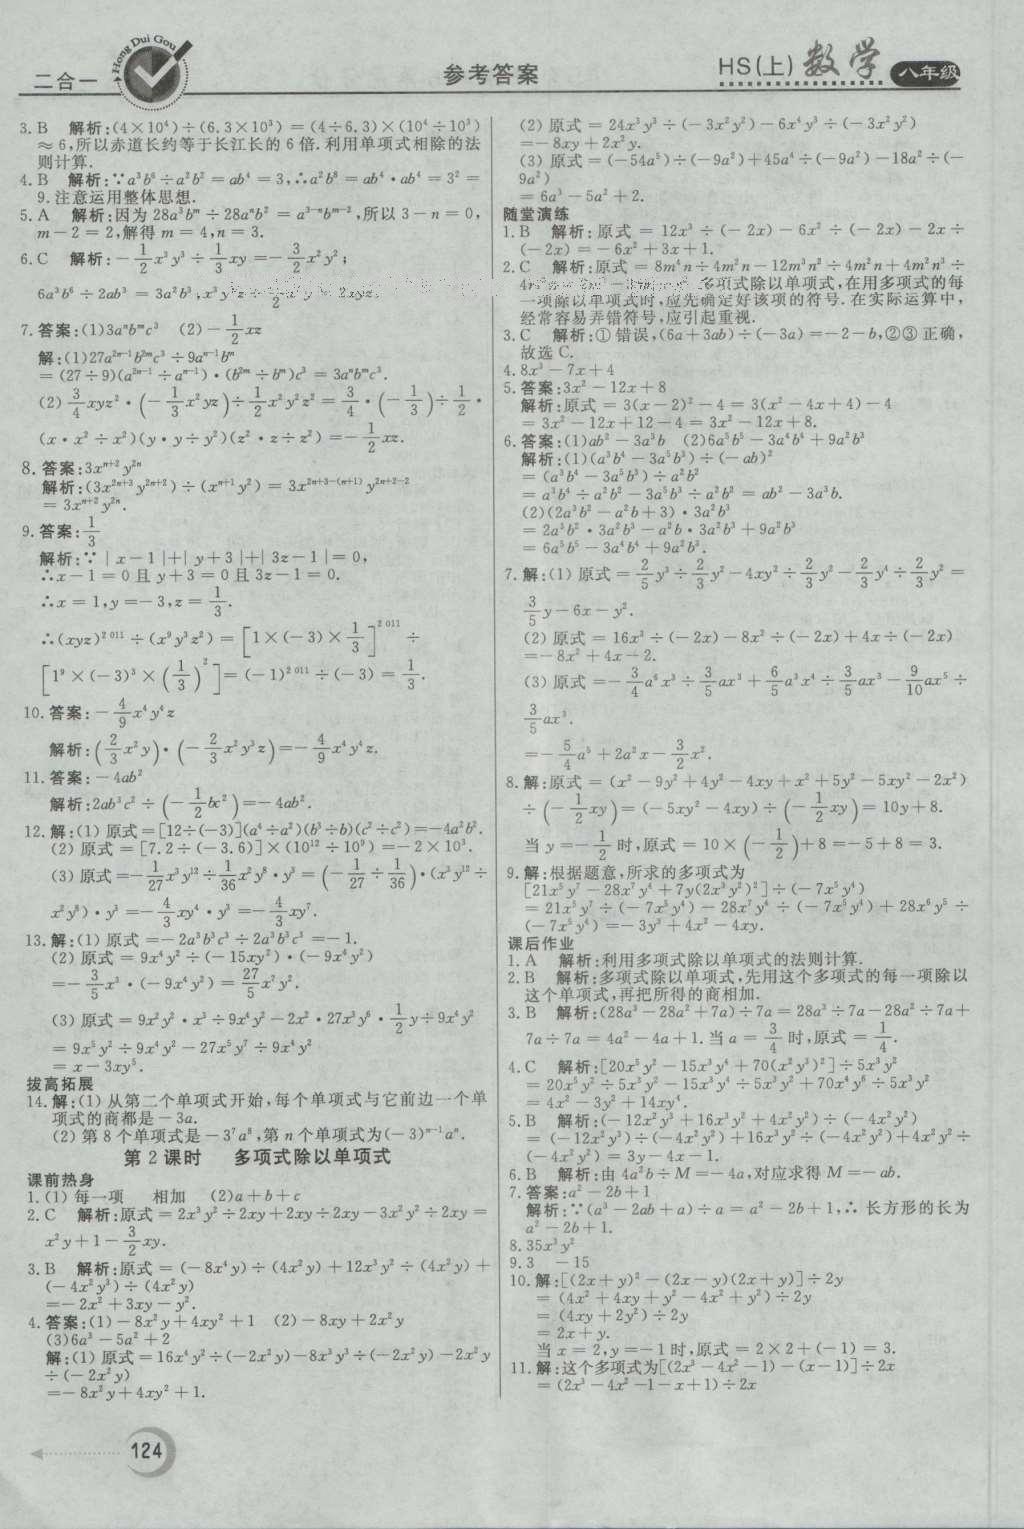 二合一
Hong Dui Gou
参考答案
HS(上) 数学 八年级
3. B 解析:(4×10⁴)÷(6.3×10³)=(4÷6.3)×(10⁴÷10³)
≈6,所以赤道长约等于长江长的6倍.利用单项式相除的法
则计算.
4. B 解析:∵a³b⁶÷a²b²=ab⁴=3,∴a²b⁸=ab⁴·ab⁴=3²=
9.注意运用整体思想.
5. A 解析:因为28a³bᵐ÷28aⁿb²=a³⁻ⁿbᵐ⁻²,所以3-n=0,
m-2=2,解得m=4,n=3.
6. C 解析:-1/2x³y³÷1/3xy=-3/2x²y²;
6a³b⁶÷2ab³=3a²b³,
7. 答案:(1)3aⁿbᵐc³ (2)-1/2xz
解:(1)27a²ⁿ⁻¹b²ᵐc³÷9aⁿ⁻¹bᵐ
=(27÷9)(a²ⁿ⁻¹÷aⁿ⁻¹)·(b²ᵐ÷bᵐ)c³=3aⁿbᵐc³.
(2)3/4xyz²·(-1/3x²yz)÷1/2x²y²z²=3/4·(-1/3)÷1/2·
(x·x²÷x²)(y·y÷y²)(z²·z÷z²)=-1/2xz.
8. 答案:3xⁿ⁺²y²ⁿ
解析:(3x²ⁿ⁺³y²ⁿ⁺²)÷(xⁿ⁺¹y²)=3x²ⁿ⁺³⁻⁽ⁿ⁺¹⁾y²ⁿ⁺²⁻²
=3xⁿ⁺²y²ⁿ.
9. 答案:1/3
解析:∵|x-1|+|y+3|+|3z-1|=0,
∴x-1=0且y+3=0且3z-1=0.
∴x=1,y=-3,z=1/3.
∴(xyz)²⁰¹¹÷(x⁹y³z²)=[1×(-3)×1/3]²⁰¹¹÷
[1⁹×(-3)³×(1/3)²]=(-1)²⁰¹¹÷(-3)=1/3.
10. 答案:-4/9x⁴y⁴z
解析:(2/3x²y)·(-2/3x²y³z)=-4/9x⁴y⁴z.
11. 答案:-4ab²
解析:2ab³c²÷(-1/2bc²)=-4ab².
12. 解:(1)原式=[12÷(-3)](a⁴÷a²)(b³÷b)(c²÷c²)=-4a²b².
(2)原式=[7.2÷(-3.6)]×(10¹²÷10⁹)=-2×10³.
(3)原式=-1/27x³y¹²÷1/36x²y⁸·y³=(-1/27÷1/36)·(x³y¹²÷
x²y⁸)·y³=-4/3xy⁴·y³=-4/3xy⁷.
13. 解:(1)原式=-2a³b³c³÷2a³b³c³=-1.
(2)原式=9x⁴y²÷(-15xy²)·(-9x⁴y²)
=-3/5x³·(-9x⁴y²)=27/5x⁷y².
(3)原式=9x²y²·x³÷9x⁴y²-2x²·27x³y⁶·1/2y÷9x⁴y²
=9x⁵y²÷9x⁴y²-27x⁵y⁷÷9x⁴y²
=x-3xy⁵.
拔高拓展
14. 解:(1)从第二个单项式开始,每个单项式与它前边一个单
项式的商都是-3a.
(2)第8个单项式是-3⁷a⁸,第n个单项式为(-3)ⁿ⁻¹aⁿ.
第2课时 多项式除以单项式
课前热身
1. (1)每一项 相加 (2)a+b+c
2. C 解析:原式=2x³y²÷2xy+2xy÷2xy-3x²y²÷2xy=
x²y+1-3/2xy.
3. B 解析:原式=(-8x⁴y)÷(4x²y)+12x³y²÷(4x²y)+
(-4x²y³)÷(4x²y)
=-2x²+3xy-y².
4. 答案:(1)-8x²y+4xy²+1 (2)-8xy+2x²y
(3)6a³-5a²+2
解:(1)原式=16x⁴y²÷(-2x²y)-8x³y³÷(-2x²y)-2x²y
÷(-2x²y)
=-8x²y+4xy²+1.
124
(2)原式=24x³y³÷(-3x²y²)-6x⁴y³÷(-3x²y²)
=-8xy+2x²y.
(3)原式=(-54a⁵)÷(-9a²)+45a⁴÷(-9a²)-18a²÷(-
9a²)
=6a³-5a²+2.
随堂演练
1. B 解析:原式=12x³÷(-2x)-6x²÷(-2x)-2x÷
(-2x)=-6x²+3x+1.
2. C 解析:原式=8m⁴n÷4m²n-12m³n²÷4m²n+4m²n³÷
多项式除以单项式,在用多项式的每
一项除以单项式时,应先确定好该项的符号.在实际运算中,
经常容易弄错符号,应引起重视.
3. C 解析:①错误,(6a+3ab)÷(-3a)=-2-b,②③正确,
故选C.
4. 8x³-7x+4
5. 答案:3x²-12x+8
解析:原式=3(x-2)²-4=3(x²-4x+4)-4
=3x²-12x+12-4=3x²-12x+8.
6. 答案:(1)ab²-3a³b (2)6a⁵b⁵-3a⁴b⁴+9a²b³
解析:(1)(a³b⁴-3a⁵b³)÷(-ab)²
=(a³b⁴-3a⁵b³)÷a²b²
=a³b⁴÷a²b²-3a⁵b³÷a²b²=ab²-3a³b.
(2)(2a³b²-a²b+3)·3a²b³
=2a³b²·3a²b³-a²b·3a²b³+9a²b³
=6a⁵b⁵-3a⁴b⁴+9a²b³.
7. 解:(1)原式=2/5y³÷2/3y²-4xy²÷2/3y²-2/3y⁴÷2/3y²=
3/5y-6x-y².
(2)原式=16x³÷(-2x)-8x²÷(-2x)+4x÷(-2x)
=-8x²+4x-2.
(3)原式=-3/4a⁶x³÷3/5ax³+6/5a³x⁴÷3/5ax³-9/10ax⁵÷
3/5ax³.
=-5/4a⁵+2a²x-3/2x².
8. 解:原式=(x²-9y²+4y²-4xy+x²+5y²-5xy²-2x²)
÷(-1/2xy)=(-5xy²-4xy)÷(-1/2xy)=10y+8.
当y=-1/2时,原式=10×(-1/2)+8=-5+8=3.
9. 解:根据题意,所求的多项式为
[21x⁵y⁷-28x⁷y⁴+7y(2x³y²)²]÷(-7x⁵y⁴)
=21x⁵y⁷÷(-7x⁵y⁴)-28x⁷y⁴÷(-7x⁵y⁴)+28x⁶y⁵÷
(-7x⁵y⁴)=-3y³+4x²-4xy.
课后作业
1. A 解析:利用多项式除以单项式的法则计算.
2. B 解析:多项式除以单项式,先用这个多项式的每一项除以
这个单项式,再把所得的商相加.
3. B 解析:(28a³-28a²+7a)÷7a=28a³÷7a-28a²÷7a+
7a÷7a=4a²-4a+1.当a=3/4时,原式=1/4.
4. C 解析:[20x⁵y²-15x³y⁴+70(x²y³)²]÷5x³y²
=20x⁵y²÷5x³y²-15x³y⁴÷5x³y²+70x⁴y⁶÷5x³y²
=4x²-3y²+14xy⁴.
5. B 解析:(-12x²y³+16x³y²+4x²y²)÷(-4x²y²)
=(-12x²y³)÷(-4x²y²)+16x³y²÷(-4x²y²)+4x²y²÷
(-4x²y²)=3y-4x-1.
6. B 解析:由4a²b÷M=-4a,对应求得M=-ab.
7. 答案:a²-2b+1
解析:∵(a³-2ab+a)÷a=a²-2b+1,∴长方形的长为
a²-2b+1.
8. 35x³y²
9. 3 -15
10. 解:[(2x+y)²-(2x-y)(2x+y)]÷2y
=(4x²+4xy+y²-4x²+y²)÷2y
=(4xy+2y²)÷2y
=2x+y.
当x=2,y=-1时,原式=2×2+(-1)=3.
11. 解:这个多项式为[(2x³-4x²-1)-(x-1)]÷2x
=(2x³-4x²-1-x+1)÷2x